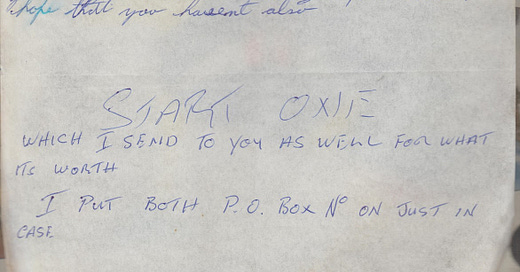 hope that you havent also
START OXIE
WHICH I SEND TO YOU AS WELL FOR WHAT
ITS WORTH
I PUT BOTH P.O. BOX Nº ON JUST IN
CASE